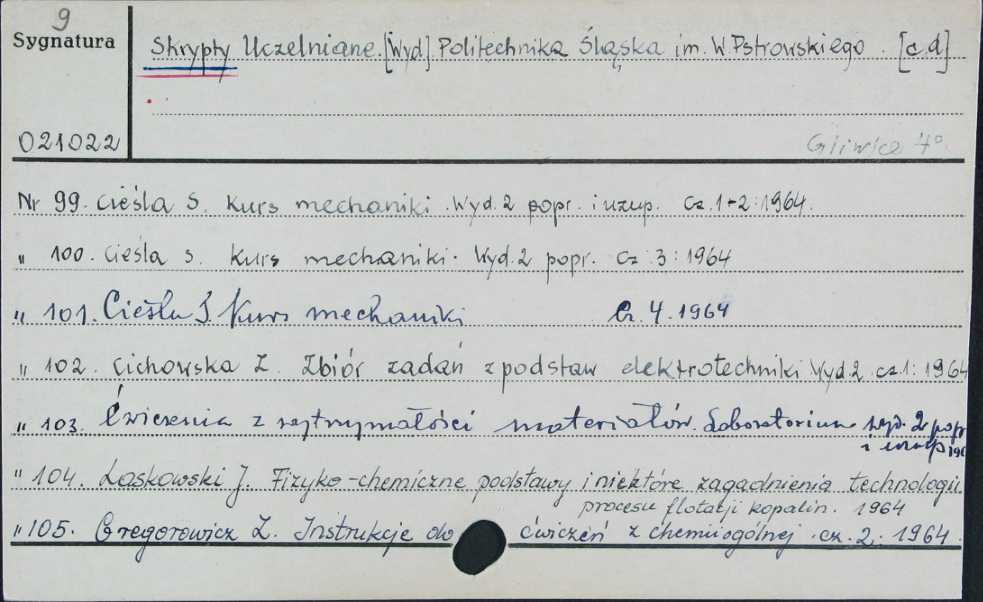 9
Sygnatura
Skrypty Uczelniane. [Wyd] Politechnika Śląska im. W Pstrowskiego. [c.d]
021022
Gliwice 4°
Nr 99. Cieśla S. Kurs mechaniki. Wyd. 2 popr. i uzup. Cz. 1+2: 1964.
" 100. Cieśla S. Kurs mechaniki. Wyd. 2 popr. Cz. 3: 1964
" 101. Cieśla S. Kurs mechaniki Cz. 4. 1964
" 102. Cichowska Z. Zbiór zadań z podstaw elektrotechniki Wyd. 2. cz 1: 1964
" 103. Ćwiczenia z wytrzymałości materiałów. Laboratorium wyd. 2 popr
i uzup 196
" 104. Laskowski J. Fizyko-chemiczne podstawy i niektóre zagadnienia technologii
procesu flotacji kopalin. 1964
" 105. Gregorowicz Z. Instrukcje do ćwiczeń z chemii ogólnej. cz. 2. 1964.